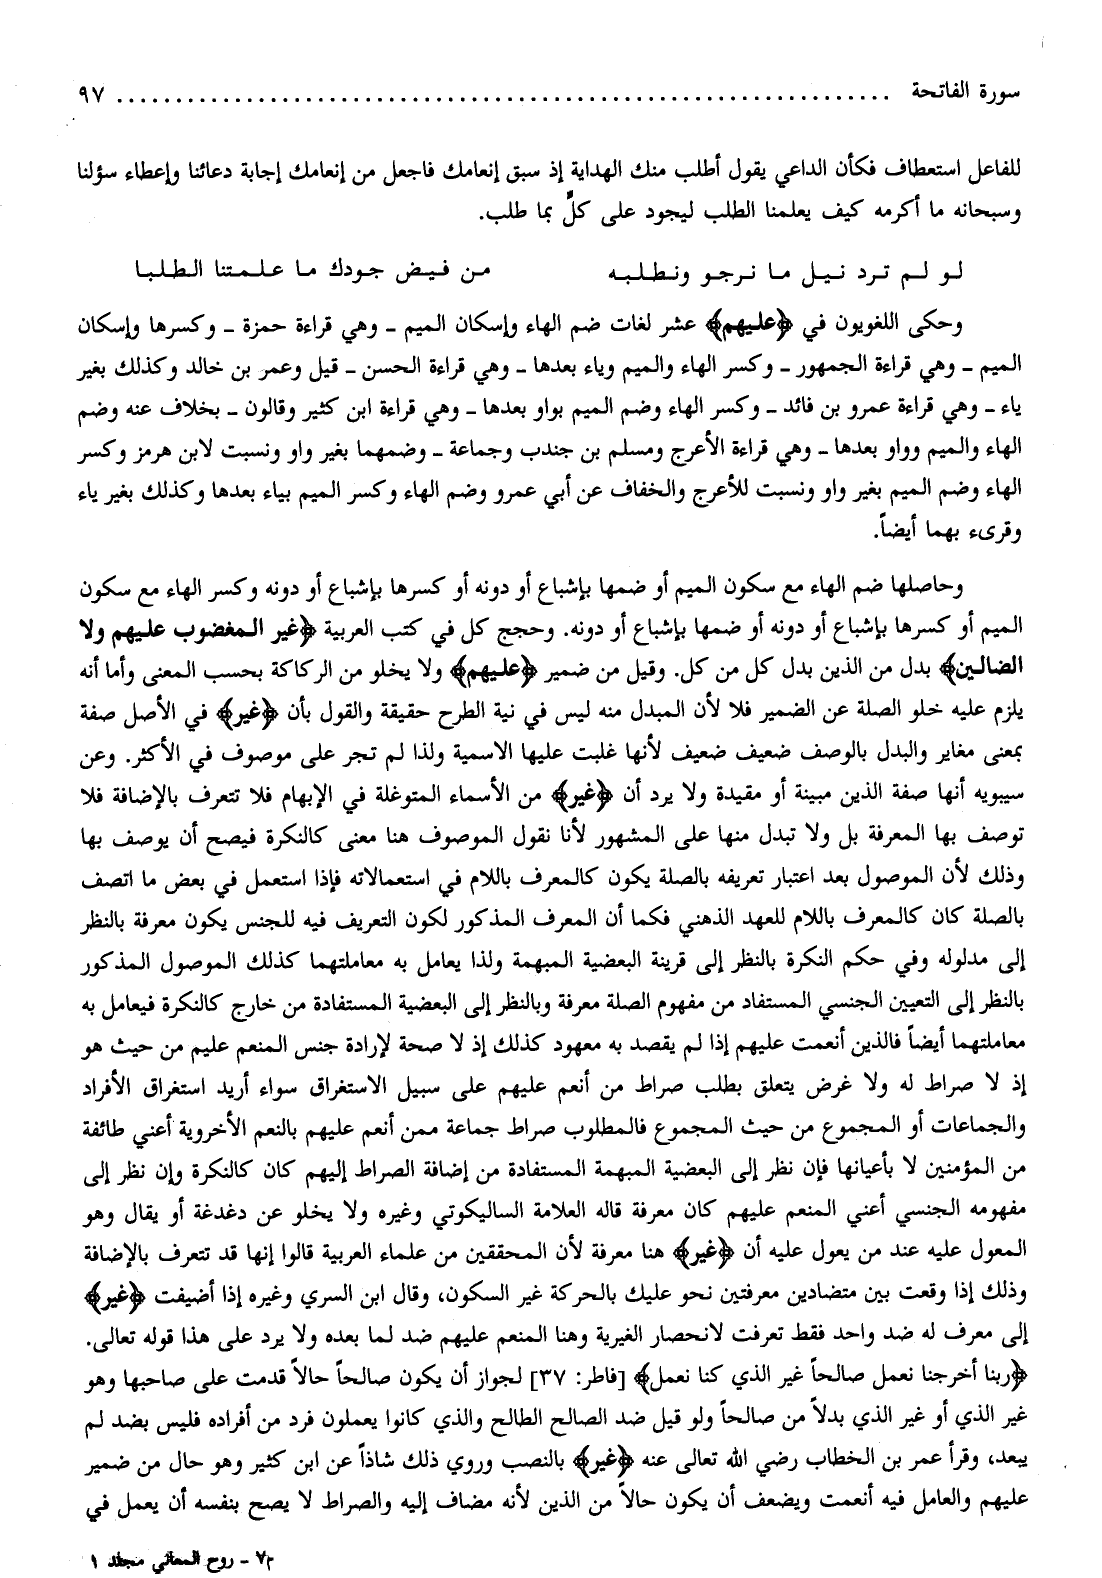 سورة الفاتحة ................................................................ ٩٧
للفاعل استعطاف فكأن الداعي يقول أطلب منك الهداية إذ سبق إنعامك فاجعل من إنعامك إجابة دعائنا وإعطاء سؤلنا
وسبحانه ما أكرمه كيف يعلمنا الطلب ليجود على كلٍّ بما طلب.
لو لم ترد نيل ما نرجو ونطلبه من فيض جودك ما علمتنا الطلبا
وحكى اللغويون في ﴿عليهم﴾ عشر لغات ضم الهاء وإسكان الميم ـ وهي قراءة حمزة ـ وكسرها وإسكان
الميم ـ وهي قراءة الجمهور ـ وكسر الهاء والميم وياء بعدها ـ وهي قراءة الحسن ـ قيل وعمر بن خالد وكذلك بغير
ياء ـ وهي قراءة عمرو بن فائد ـ وكسر الهاء وضم الميم بواو بعدها ـ وهي قراءة ابن كثير وقالون ـ بخلاف عنه وضم
الهاء والميم وواو بعدها ـ وهي قراءة الأعرج ومسلم بن جندب وجماعة ـ وضمهما بغير واو ونسبت لابن هرمز وكسر
الهاء وضم الميم بغير واو ونسبت للأعرج والخفاف عن أبي عمرو وضم الهاء وكسر الميم بياء بعدها وكذلك بغير ياء
وقرىء بهما أيضاً.
وحاصلها ضم الهاء مع سكون الميم أو ضمها بإشباع أو دونه أو كسرها بإشباع أو دونه وكسر الهاء مع سكون
الميم أو كسرها بإشباع أو دونه أو ضمها بإشباع أو دونه. وحجج كل في كتب العربية ﴿غير المغضوب عليهم ولا
الضالين﴾ بدل من الذين بدل كل من كل. وقيل من ضمير ﴿عليهم﴾ ولا يخلو من الركاكة بحسب المعنى وأما أنه
يلزم عليه خلو الصلة عن الضمير فلا لأن المبدل منه ليس في نية الطرح حقيقة والقول بأن ﴿غير﴾ في الأصل صفة
بمعنى مغاير والبدل بالوصف ضعيف ضعيف لأنها غلبت عليها الاسمية ولذا لم تجر على موصوف في الأكثر. وعن
سيبويه أنها صفة الذين مبينة أو مقيدة ولا يرد أن ﴿غير﴾ من الأسماء المتوغلة في الإبهام فلا تتعرف بالإضافة فلا
توصف بها المعرفة بل ولا تبدل منها على المشهور لأنا نقول الموصوف هنا معنى كالنكرة فيصح أن يوصف بها
وذلك لأن الموصول بعد اعتبار تعريفه بالصلة يكون كالمعرف باللام في استعمالاته فإذا استعمل في بعض ما اتصف
بالصلة كان كالمعرف باللام للعهد الذهني فكما أن المعرف المذكور لكون التعريف فيه للجنس يكون معرفة بالنظر
إلى مدلوله وفي حكم النكرة بالنظر إلى قرينة البعضية المبهمة ولذا يعامل به معاملتهما كذلك الموصول المذكور
بالنظر إلى التعيين الجنسي المستفاد من مفهوم الصلة معرفة وبالنظر إلى البعضية المستفادة من خارج كالنكرة فيعامل به
معاملتهما أيضاً فالذين أنعمت عليهم إذا لم يقصد به معهود كذلك إذ لا صحة لإرادة جنس المنعم عليم من حيث هو
إذ لا صراط له ولا غرض يتعلق بطلب صراط من أنعم عليهم على سبيل الاستغراق سواء أريد استغراق الأفراد
والجماعات أو المجموع من حيث المجموع فالمطلوب صراط جماعة ممن أنعم عليهم بالنعم الأخروية أعني طائفة
من المؤمنين لا بأعيانها فإن نظر إلى البعضية المبهمة المستفادة من إضافة الصراط إليهم كان كالنكرة وإن نظر إلى
مفهومه الجنسي أعني المنعم عليهم كان معرفة قاله العلامة الساليكوتي وغيره ولا يخلو عن دغدغة أو يقال وهو
المعول عليه عند من يعول عليه أن ﴿غير﴾ هنا معرفة لأن المحققين من علماء العربية قالوا إنها قد تتعرف بالإضافة
وذلك إذا وقعت بين متضادين معرفتين نحو عليك بالحركة غير السكون، وقال ابن السري وغيره إذا أضيفت ﴿غير﴾
إلى معرف له ضد واحد فقط تعرفت لانحصار الغيرية وهنا المنعم عليهم ضد لما بعده ولا يرد على هذا قوله تعالى.
﴿ربنا أخرجنا نعمل صالحاً غير الذي كنا نعمل﴾ [فاطر: ٣٧] لجواز أن يكون صالحاً حالاً قدمت على صاحبها وهو
غير الذي أو غير الذي بدلاً من صالحاً ولو قيل ضد الصالح الطالح والذي كانوا يعملون فرد من أفراده فليس بضد لم
يبعد، وقرأ عمر بن الخطاب رضي الله تعالى عنه ﴿غير﴾ بالنصب وروي ذلك شاذاً عن ابن كثير وهو حال من ضمير
عليهم والعامل فيه أنعمت ويضعف أن يكون حالاً من الذين لأنه مضاف إليه والصراط لا يصح بنفسه أن يعمل في
م٧ ـ روح المعاني مجلد ١